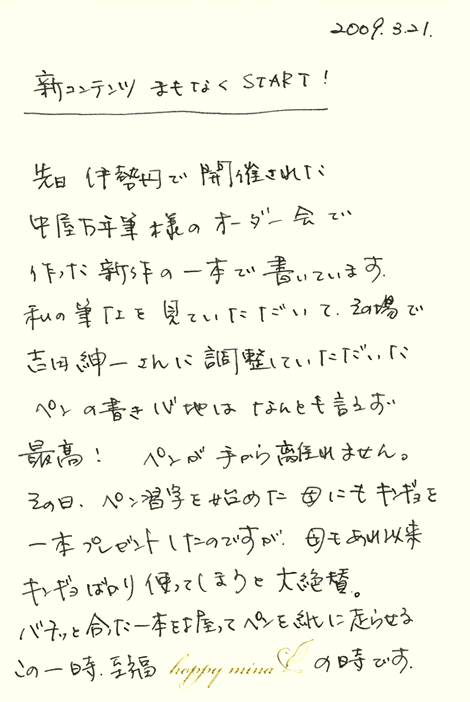 2009.3.21.
新コンテンツ まもなく START!
先日 伊勢丹で 開催された
中屋万年筆様の オーダー会で
作った 新作の一本で 書いています.
私の筆圧を 見ていただいて、その場で
吉田紳一さんに 調整していただいた
ペンの書き心地は なんとも言えず
最高! ペンが 手から離れません。
その日、ペン習字を始めた 母にもキンギョを
一本プレゼントしたのですが、母もあれ以来
キンギョばかり 使ってしまうと 大絶賛。
バチッと合った一本を握ってペンを紙に走らせる
この一時、至福 happy mina の時です.